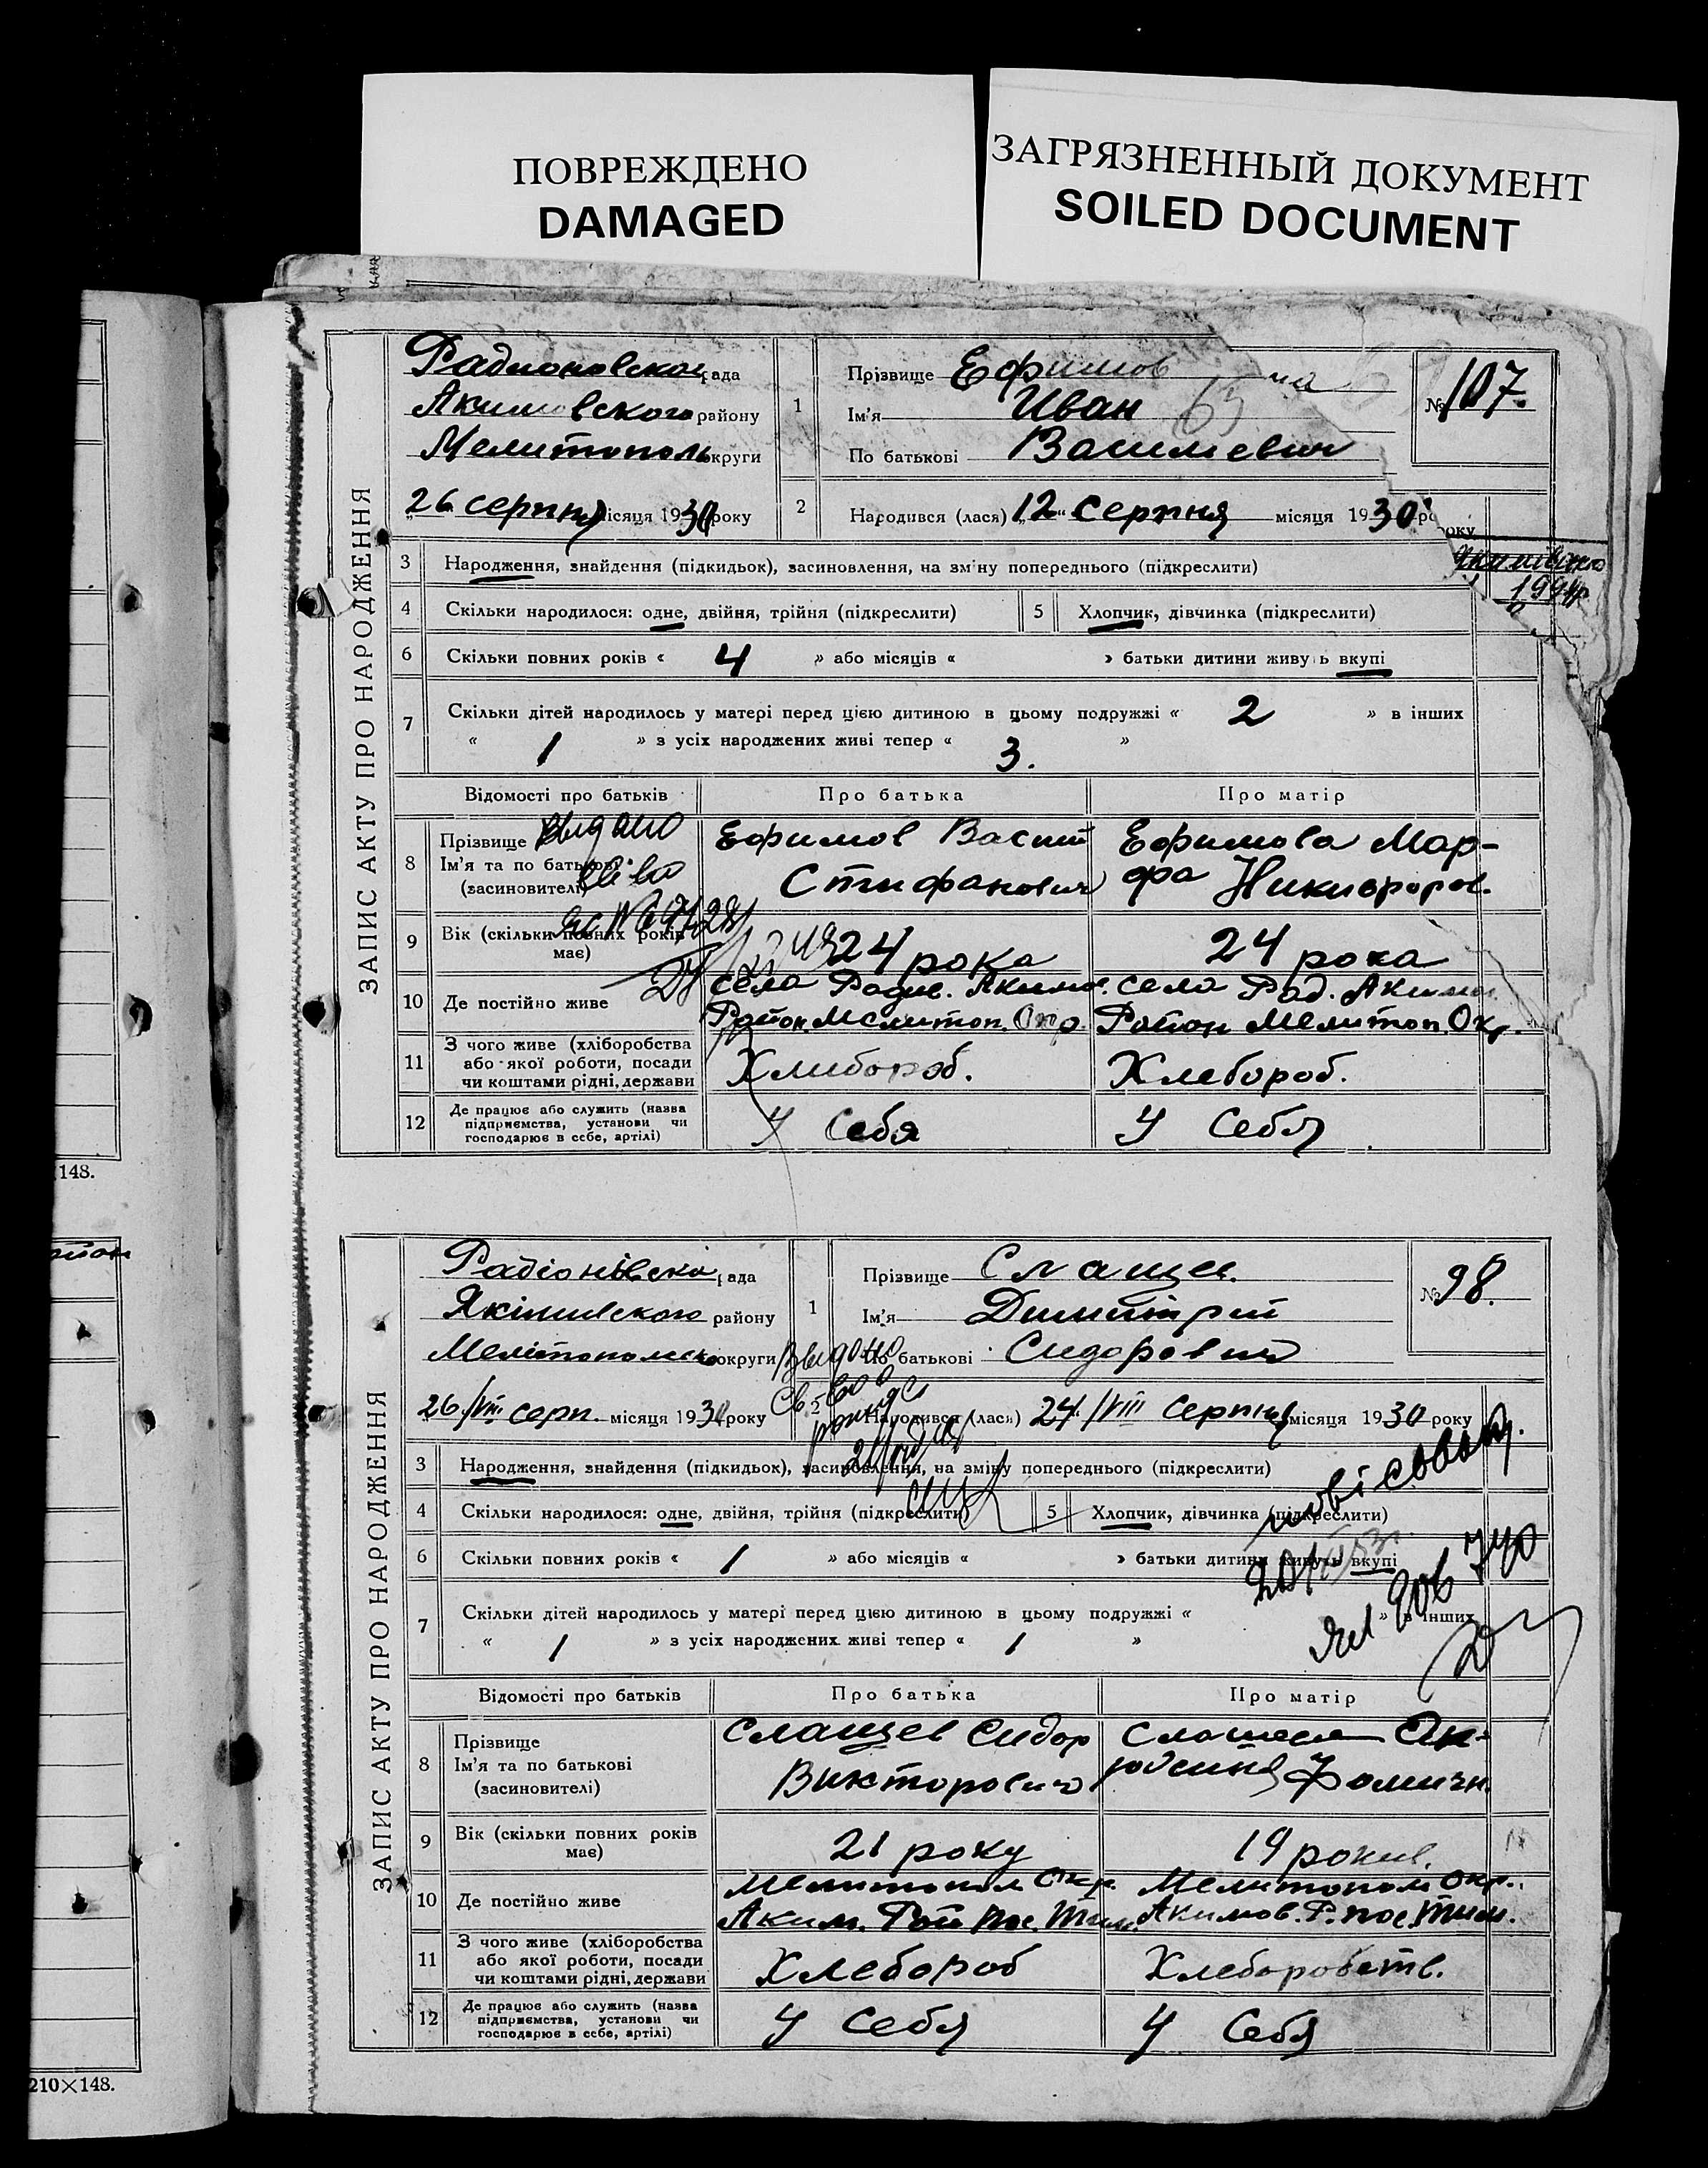 ПОВРЕЖДЕНО
DAMAGED
ЗАГРЯЗНЕННЫЙ ДОКУМЕНТ
SOILED DOCUMENT
ЗАПИС АКТУ ПРО НАРОДЖЕННЯ
Радионовской рада
Акимовского району
Мелитополь округи
26 серпня місяця 1930 року
1
Прізвище Ефимов
Ім'я Иван
По батькові Василиевич
№ 107.
2 Народився (лася) „12“ серпня місяця 1930 ро
оку
3 Народження, знайдення (підкидьок), засиновлення, на зміну попереднього (підкреслити)
4 Скільки народилося: одне, двійня, трійня (підкреслити)
5 Хлопчик, дівчинка (підкреслити)
6 Скільки повних років « 4 » або місяців « » батьки дитини живуть вкупі
7 Скільки дітей народилось у матері перед цією дитиною в цьому подружжі « 2 » в інших
« 1 » з усіх народжених живі тепер « 3. »
Відомості про батьків Про батька Про матір
8 Прізвище
Ім'я та по батькові
(засновителі)
Выдано
Ефимов Васил
Стифанович
Ефимова Мар-
фа Никифоров.
9 Вік (скільки повних років
має)
24 рока
24 рока
10 Де постійно живе
села Радив. Аким.
Район. Мелитоп. Окр.
села Рад. Аким
Район Мелитоп. Окр.
11 З чого живе (хліборобства
або якої роботи, посади
чи коштами рідні, держави
Хлибороб.
Хлебороб.
12 Де працює або служить (назва
підприємства, установи чи
господарює в себе, артілі)
У себя
У себя
148.
ЗАПИС АКТУ ПРО НАРОДЖЕННЯ
Радіонівска рада
Якімивского району
Мелітопольск округи
26/VIII серп. місяця 1930 року
1
Прізвище Слащев
Ім'я Димитрий
По батькові Сидорович
№ 98.
Выдано
2 Народився (лася) 24/VIII серпня місяця 1930 року
3 Народження, знайдення (підкидьок), засиновлення, на зміну попереднього (підкреслити)
4 Скільки народилося: одне, двійня, трійня (підкреслити)
5 Хлопчик, дівчинка (підкреслити)
6 Скільки повних років « 1 » або місяців « » батьки дитини живуть вкупі
7 Скільки дітей народилось у матері перед цією дитиною в цьому подружжі « » в інших
« 1 » з усіх народжених живі тепер « 1 »
Відомості про батьків Про батька Про матір
8 Прізвище
Ім'я та по батькові
(засиновителі)
Слащев Сидор
Викторович
Фомичн.
9 Вік (скільки повних років
має)
21 року
19 рокив.
10 Де постійно живе
Мелитопол Окр.
Аким. Рай пос. Тим.
Мелитопол Окр.
Акимов. Р. пос. Тим.
11 З чого живе (хліборобства
або якої роботи, посади
чи коштами рідні, держави
Хлебороб
Хлеборобств.
12 Де працює або служить (назва
підприємства, установи чи
господарює в себе, артілі)
У себя
У себя
210×148.